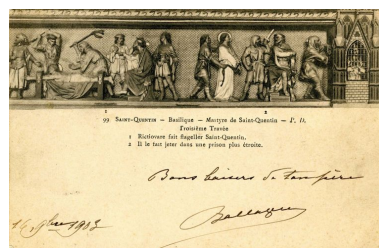 1 2
99 SAINT-QUENTIN — Basilique — Martyre de Saint-Quentin — P. D.
Troisième Travée
1 Rictiovare fait flageller Saint-Quentin.
2 Il le fait jeter dans une prison plus étroite.
Bons baisers de ton père
1903